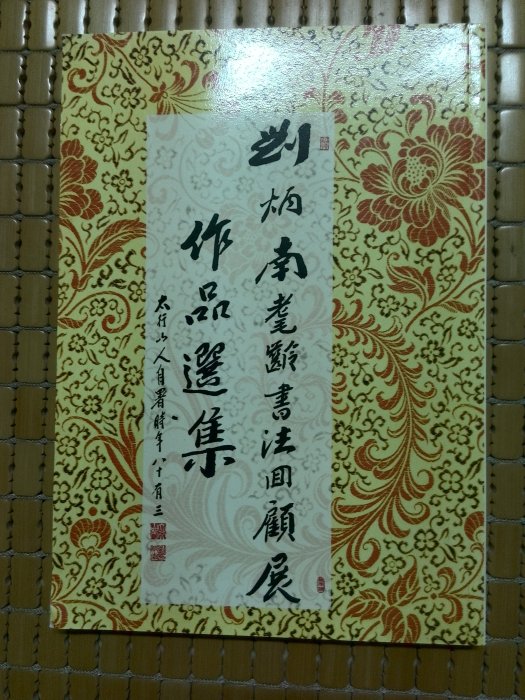 劉炳南耄齡書法回顧展
作品選集
太行山人自署時年八十有三